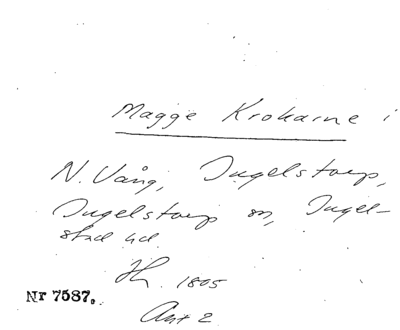 Magge Krokarne i
N. Vång, Ingelstorp,
Ingelstorp sn, Ingel-
stad hd.
1805
Nr 7587.
Ant 2